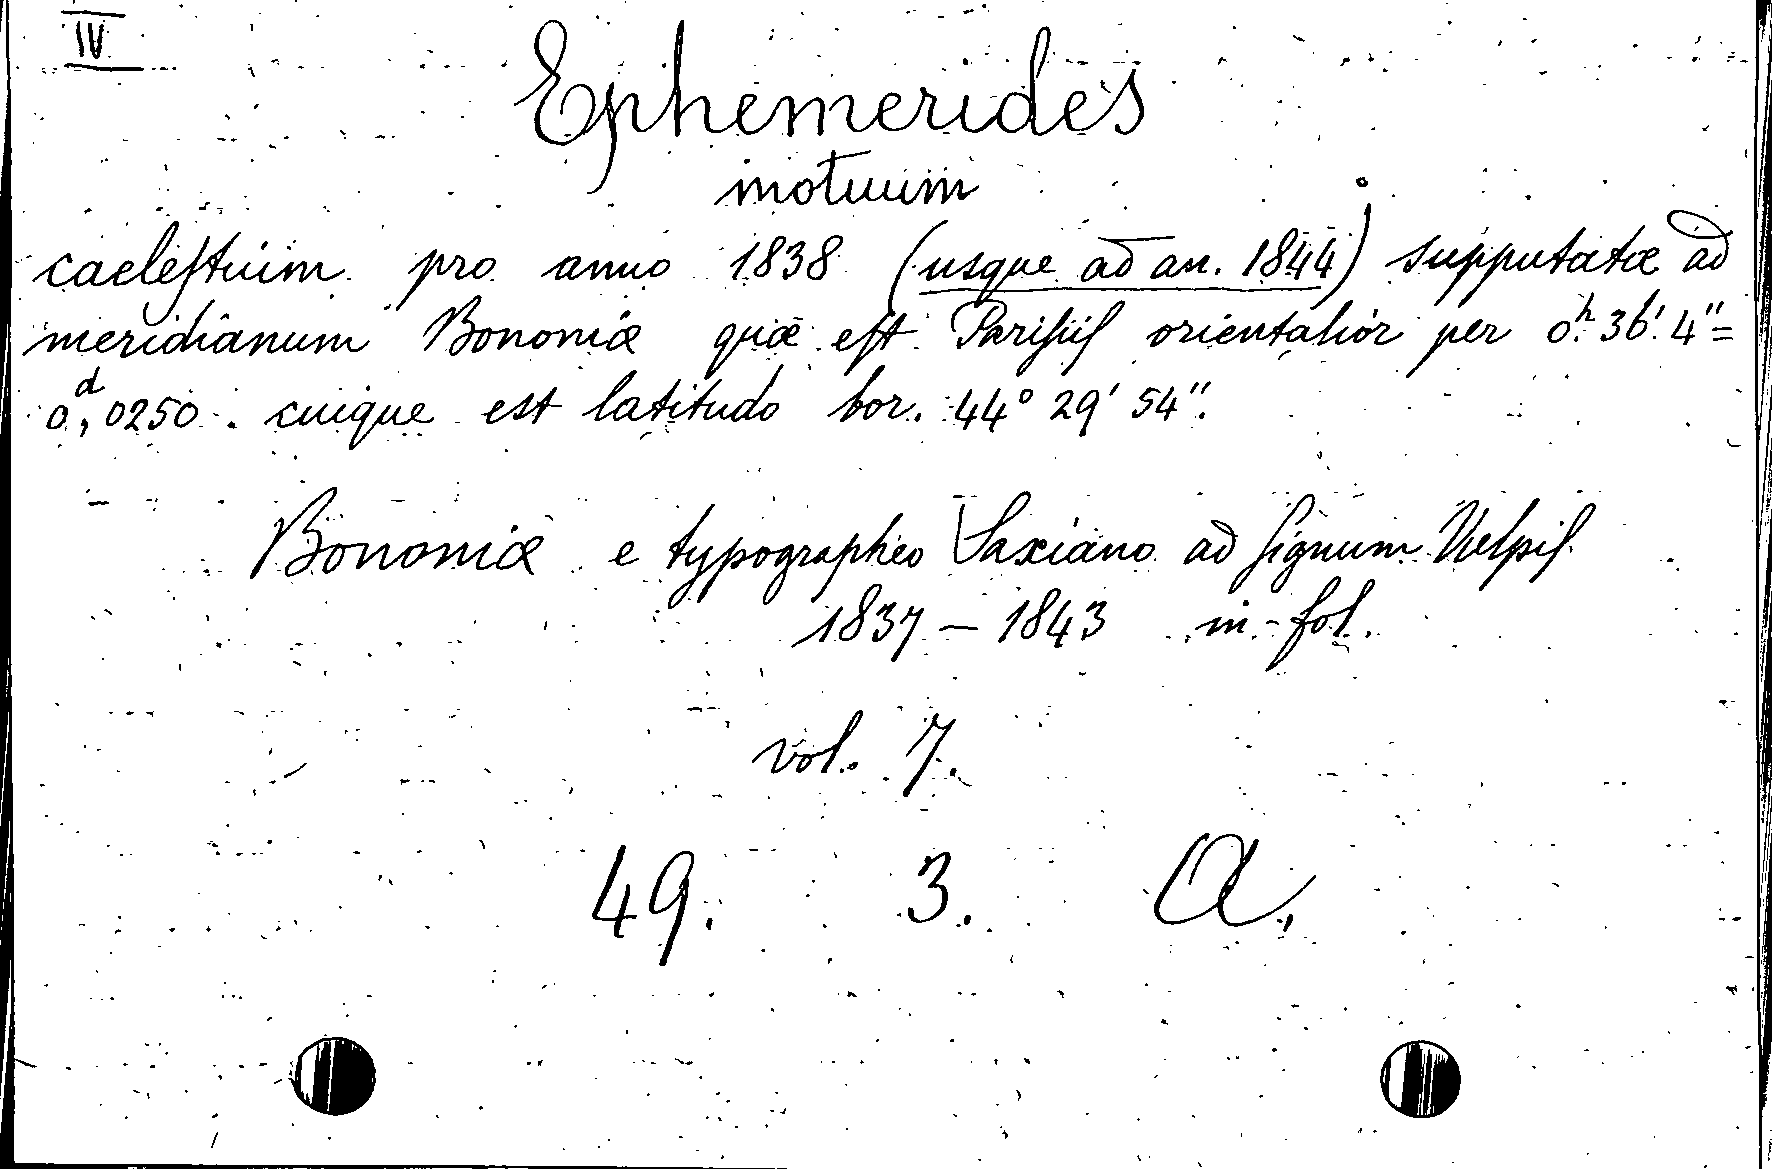 IV
Ephemerides
motuum
caeleſtium pro anno 1838 (usque ad an. 1844) supputatæ ad
meridianum Bononiæ quæ eſt Pariſiiſ orientalior per 0ʰ. 36'. 4"=
0ᵈ,0250. cuique est latitudo bor. 44° 29' 54".
Bononiæ e typographeo Saxiano ad ſignum Velpiſ
1837 – 1843 in-fol.
vol. 7.
49. 3. A.